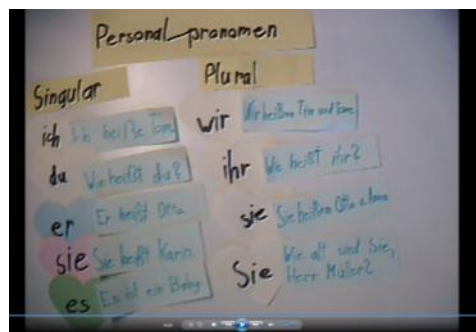 Personalpronomen
Singular
ich Ich heiße Tom
du Wie heißt du?
er Er heißt Otto.
sie Sie heißt Karin.
es Es ist ein Baby.
Plural
wir Wir heißen Tim und Tom.
ihr Wie heißt ihr?
sie Sie heißen Otto u.
Sie Wie alt sind Sie,
Herr Müller?